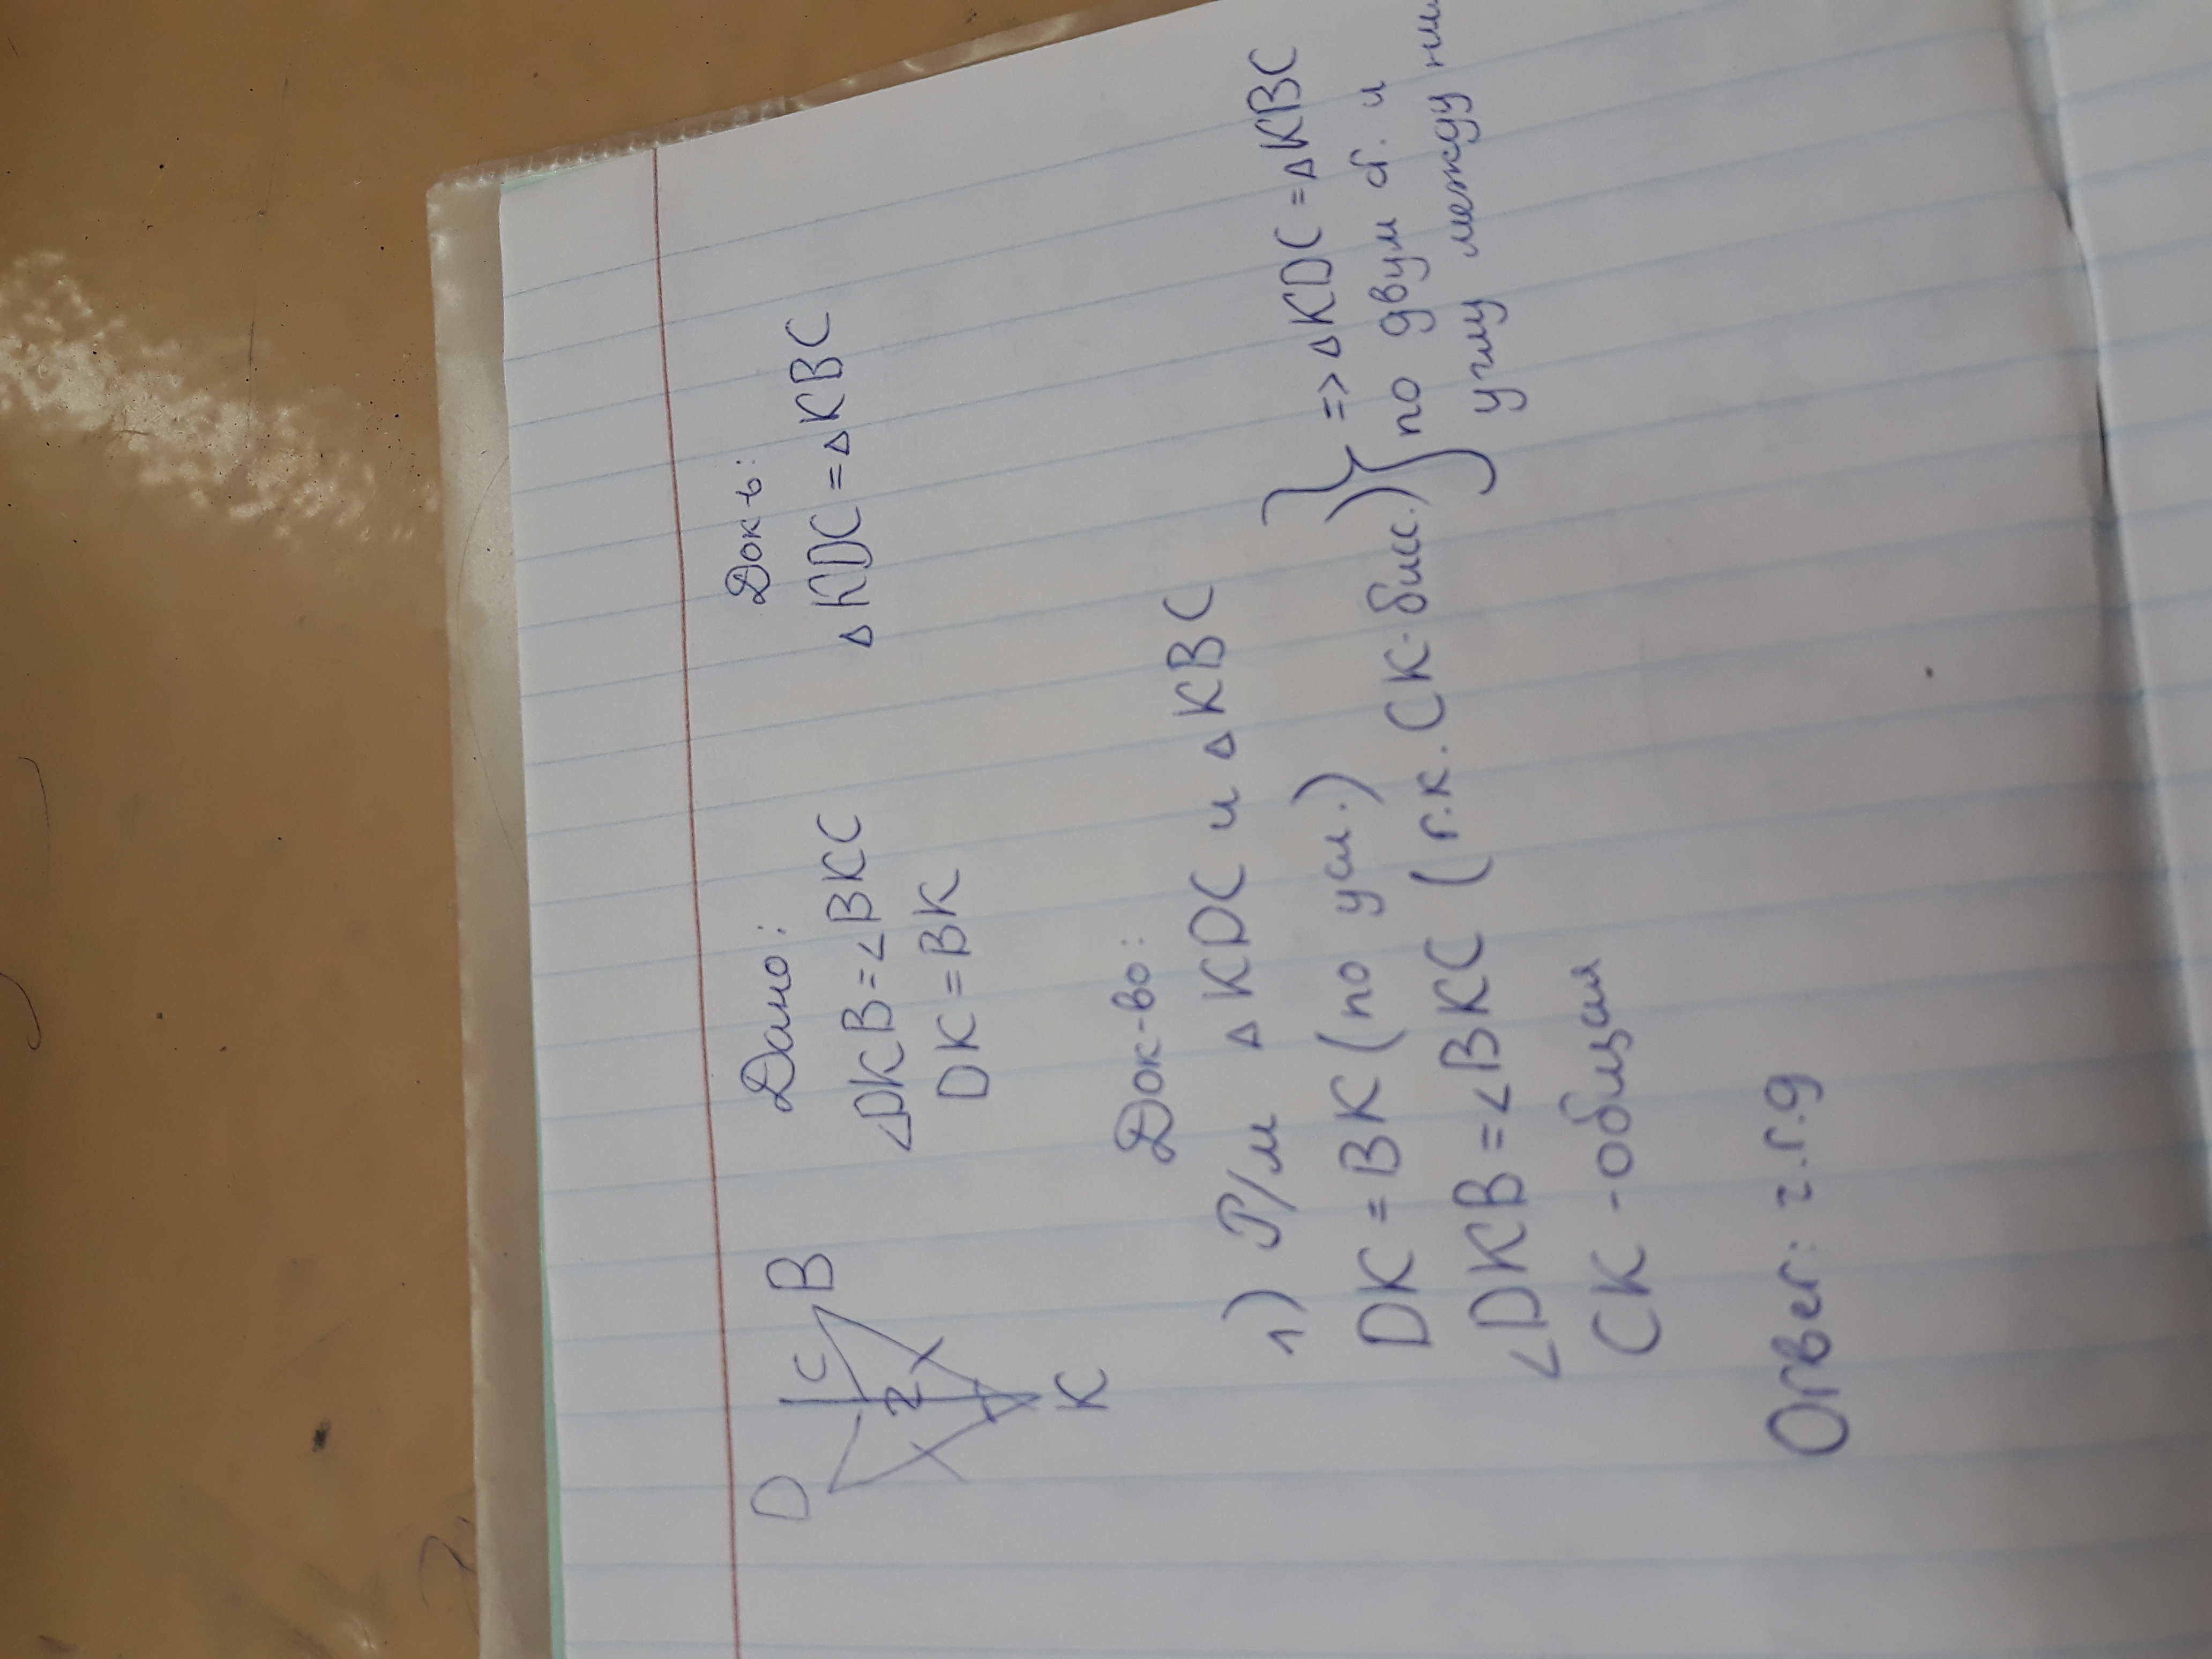 D C B
2
K
Дано:
∠DKB=∠BKC
DK=BK
Док-ь:
▵KDC=▵KBC
Док-во:
1) Р/м ▵KDC и ▵KBC
DK=BK (по усл.)
∠DKB=∠BKC (т.к. СК-бисс.)
СК-общая
} => ▵KDC=▵KBC
по двум ст. и
углу между ним
Ответ: ч.т.д